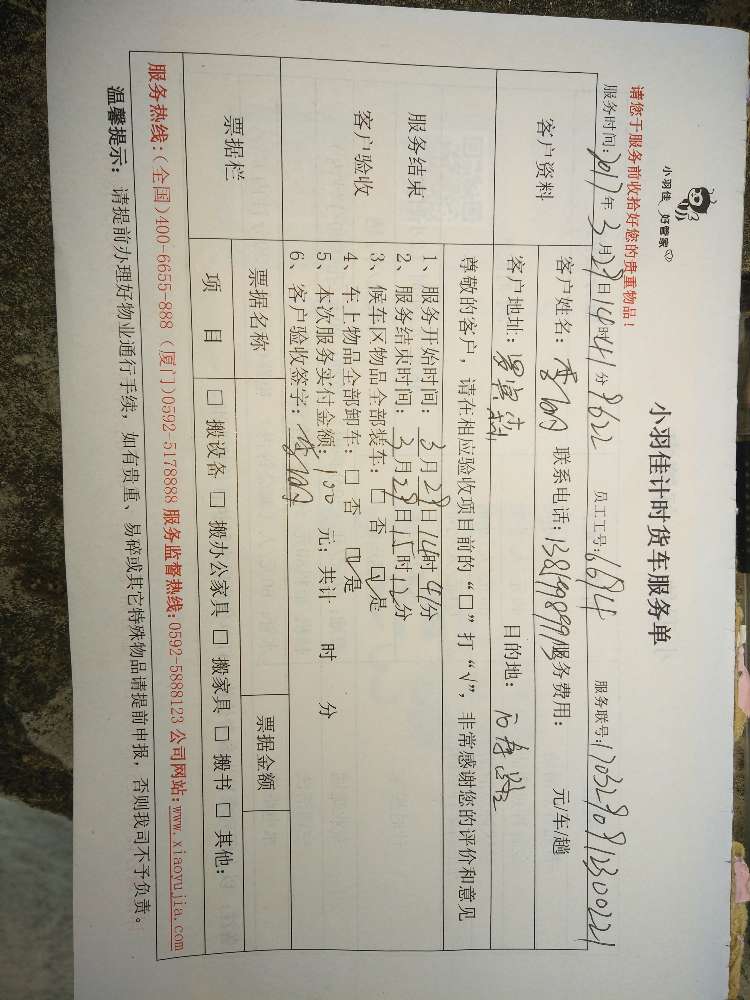 小羽佳 好管家
小羽佳计时货车服务单
请您于服务前收拾好您的贵重物品!
服务时间:2017年3月29日14时41分 员工工号: 6614 服务联号:
客户资料
客户姓名: 联系电话: 服务费用: 元/车/趟
客户地址: 目的地:
尊敬的客户,请在相应验收项目前的“□”打“√”,非常感谢您的评价和意见
服务结束
客户验收
1、服务开始时间: 3月29日14时41分
2、服务结束时间: 3月29日15时12分
3、候车区物品全部装车: □ 否 ☑ 是
4、车上物品全部卸车: □ 否 ☑ 是
5、本次服务实付金额: 100 元; 共计 时 分
6、客户验收签字:
票据栏
票据名称 票据金额
项 目 □ 搬设备 □ 搬办公家具 □ 搬家具 □ 搬书 □ 其他:
服务热线:(全国)400-6655-888 (厦门)0592-5178888 服务监督热线:0592-5888123 公司网站:www.xiaoyujia.com
温馨提示: 请提前办理好物业通行手续, 如有贵重、易碎或其它特殊物品请提前申报, 否则我司不予负责。